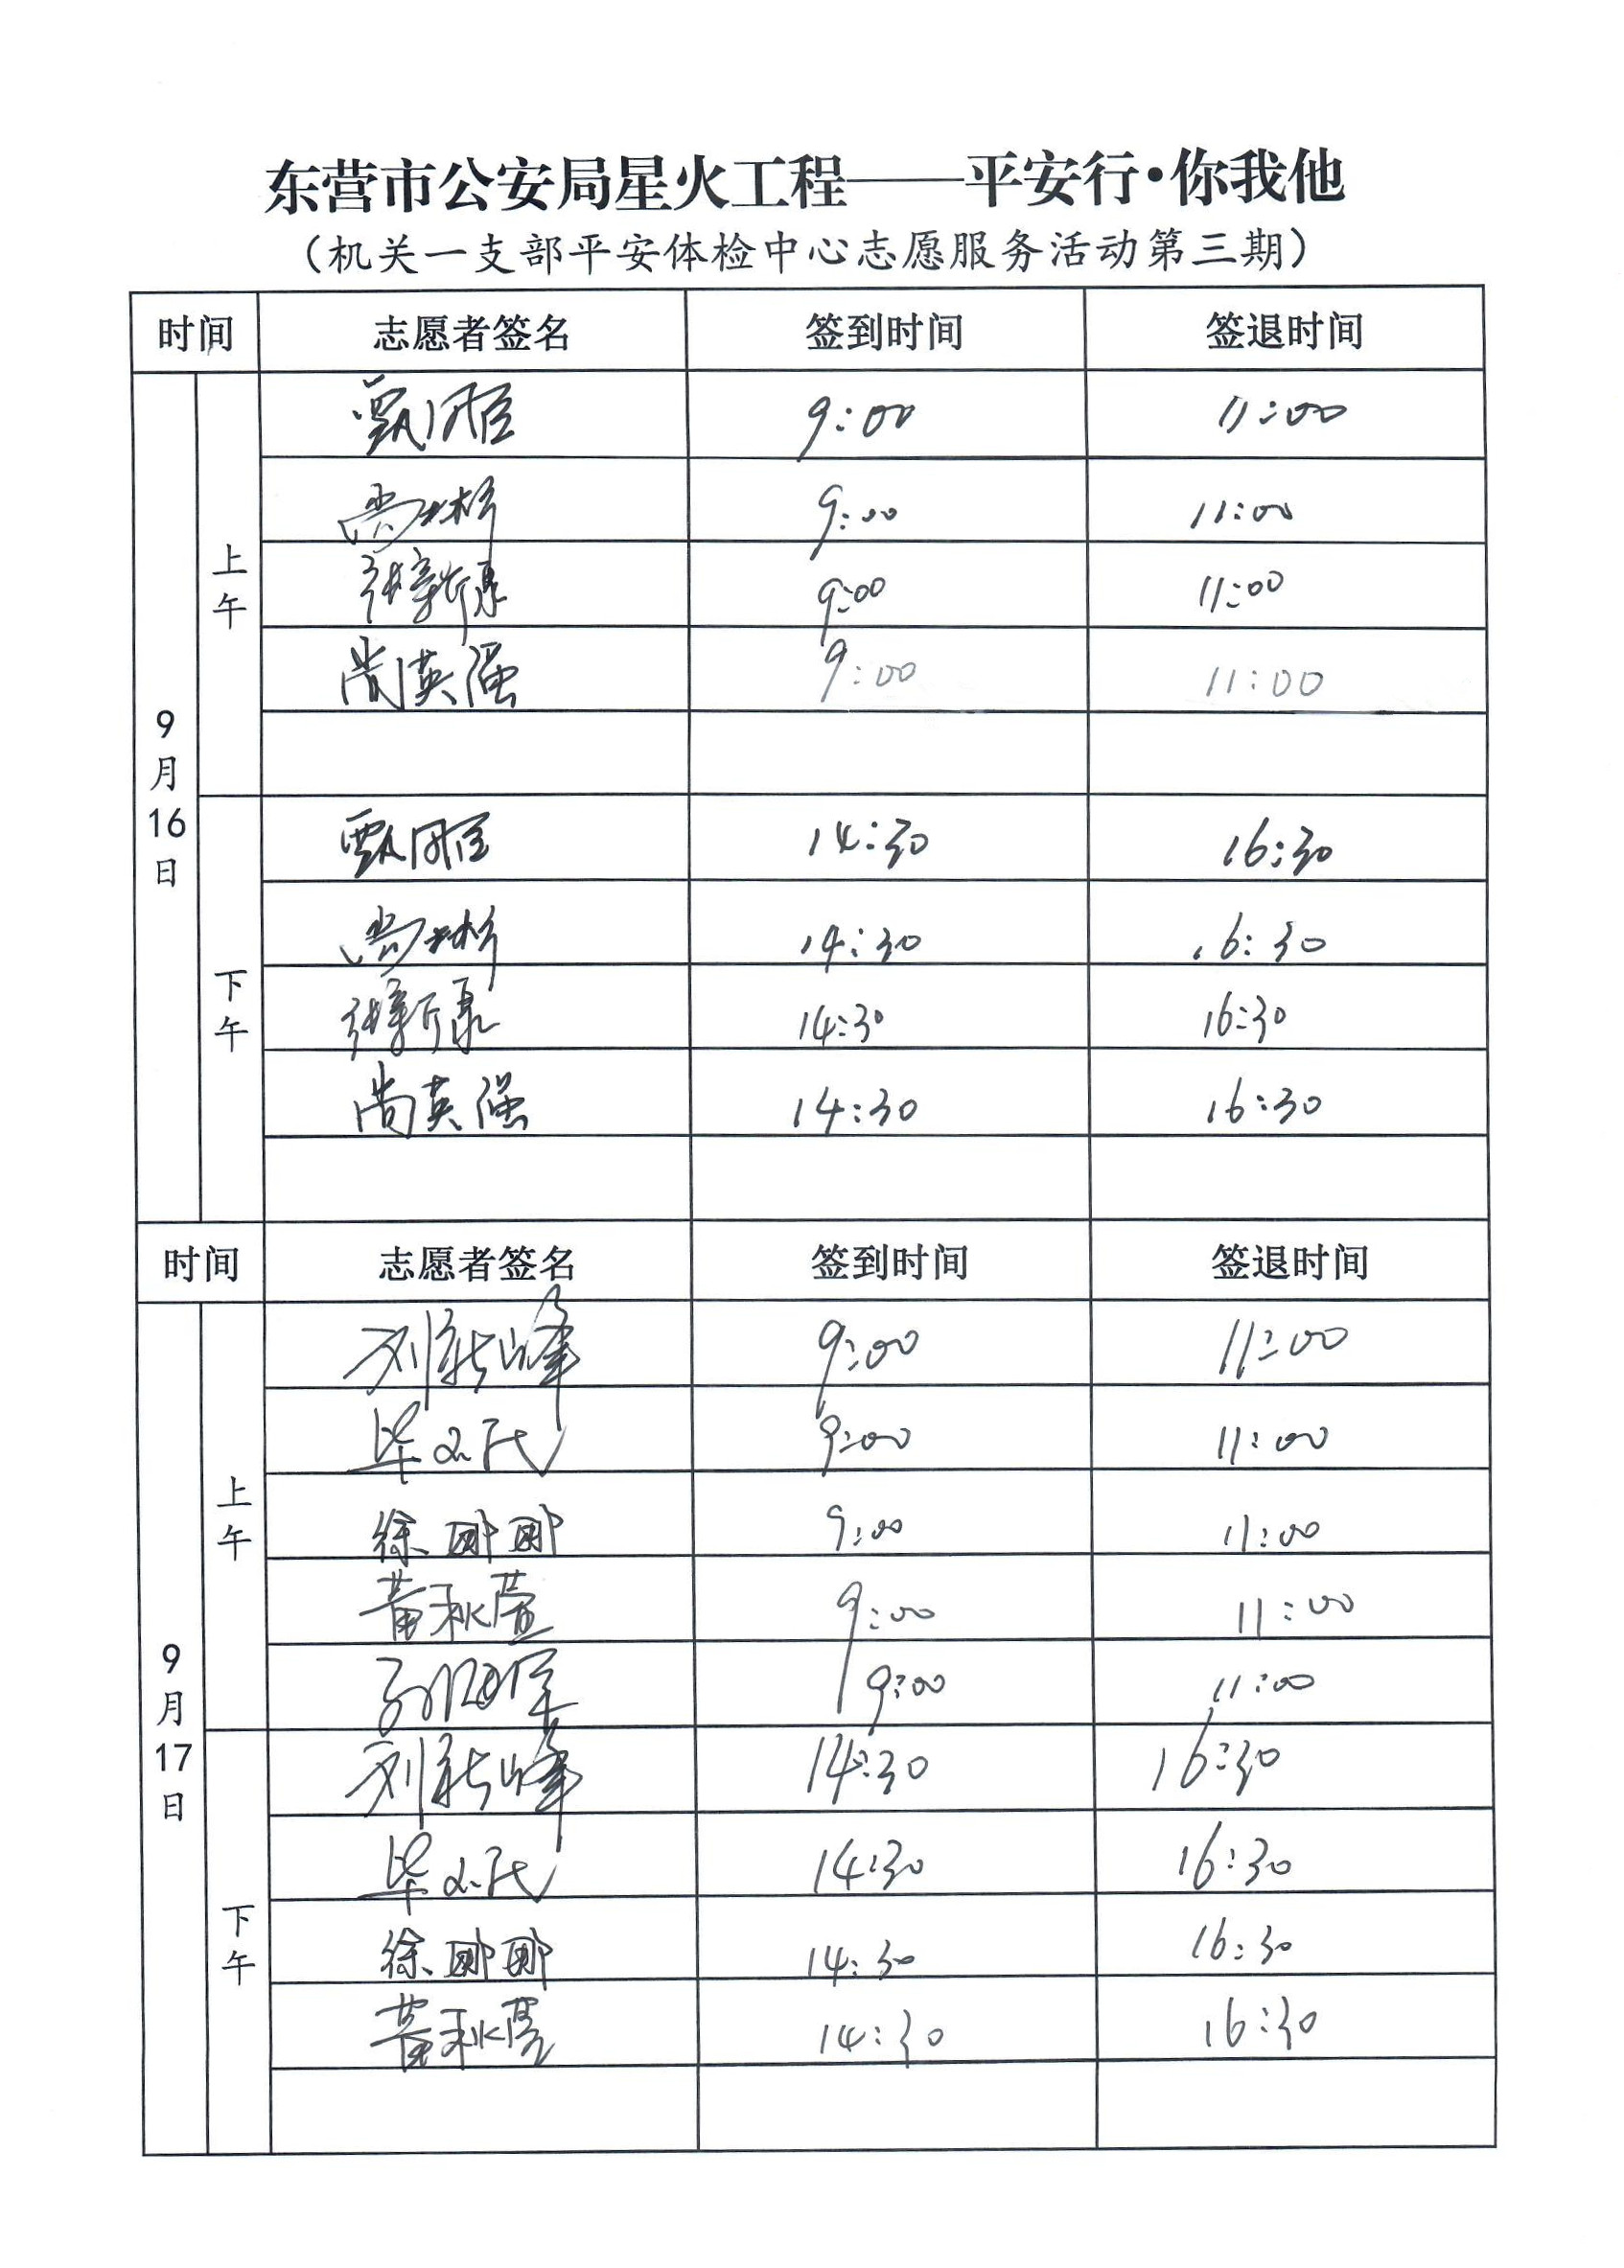 东营市公安局星火工程——平安行·你我他
（机关一支部平安体检中心志愿服务活动第三期）
时间 志愿者签名 签到时间 签退时间
9月16日 上午 9:00 11:00
9:00 11:00
张新康 9:00 11:00
尚英强 9:00 11:00
下午 14:30 16:30
14:30 16:30
张新康 14:30 16:30
尚英强 14:30 16:30
时间 志愿者签名 签到时间 签退时间
9月17日 上午 刘新峰 9:00 11:00
9:00 11:00
徐娜娜 9:00 11:00
黄秋萱 9:00 11:00
9:00 11:00
下午 刘新峰 14:30 16:30
14:30 16:30
徐娜娜 14:30 16:30
黄秋萱 14:30 16:30